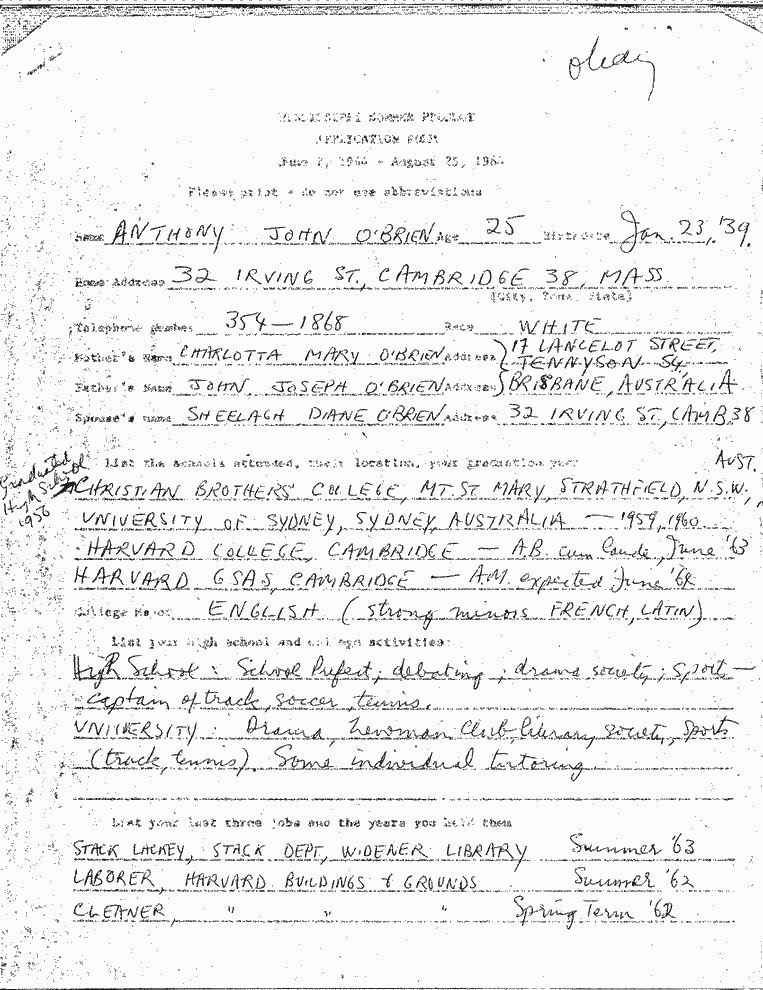 okay
MISSISSIPPI SUMMER PROJECT
APPLICATION FORM
June 7, 1964 - August 25, 1964
Please print - do not use abbreviations
Name ANTHONY JOHN O'BRIEN Age 25 Birthdate Jan. 23, '39.
Home Address 32 IRVING ST., CAMBRIDGE 38, MASS.
(City, Zone, State)
Telephone Number 354-1868 Race WHITE
Mother's Name CHARLOTTA MARY O'BRIEN Address 17 LANCELOT STREET, TENNYSON S4
Father's Name JOHN JOSEPH O'BRIEN Address BRISBANE, AUSTRALIA
Spouse's name SHEELAGH DIANE O'BRIEN Address 32 IRVING ST, CAMB 38
List the schools attended, their location, your graduation year AUST.
Graduated High School 1956
CHRISTIAN BROTHERS' COLLEGE, MT. ST. MARY, STRATHFIELD, N.S.W.,
UNIVERSITY OF SYDNEY, SYDNEY, AUSTRALIA — 1959, 1960
HARVARD COLLEGE, CAMBRIDGE — A.B. cum laude, June '63
HARVARD GSAS, CAMBRIDGE — A.M. expected June '64
College Major ENGLISH (strong minors FRENCH, LATIN)
List your high school and college activities:
High School: School Prefect; debating; drama society; sports —
captain of track, soccer, tennis.
UNIVERSITY: Drama, Newman Club, literary society, sports
(track, tennis). Some individual tutoring.
List your last three jobs and the years you held them
STACK LACKEY, STACK DEPT, WIDENER LIBRARY Summer '63
LABORER, HARVARD BUILDINGS & GROUNDS Summer '62
CLEANER, " " " Spring Term '62